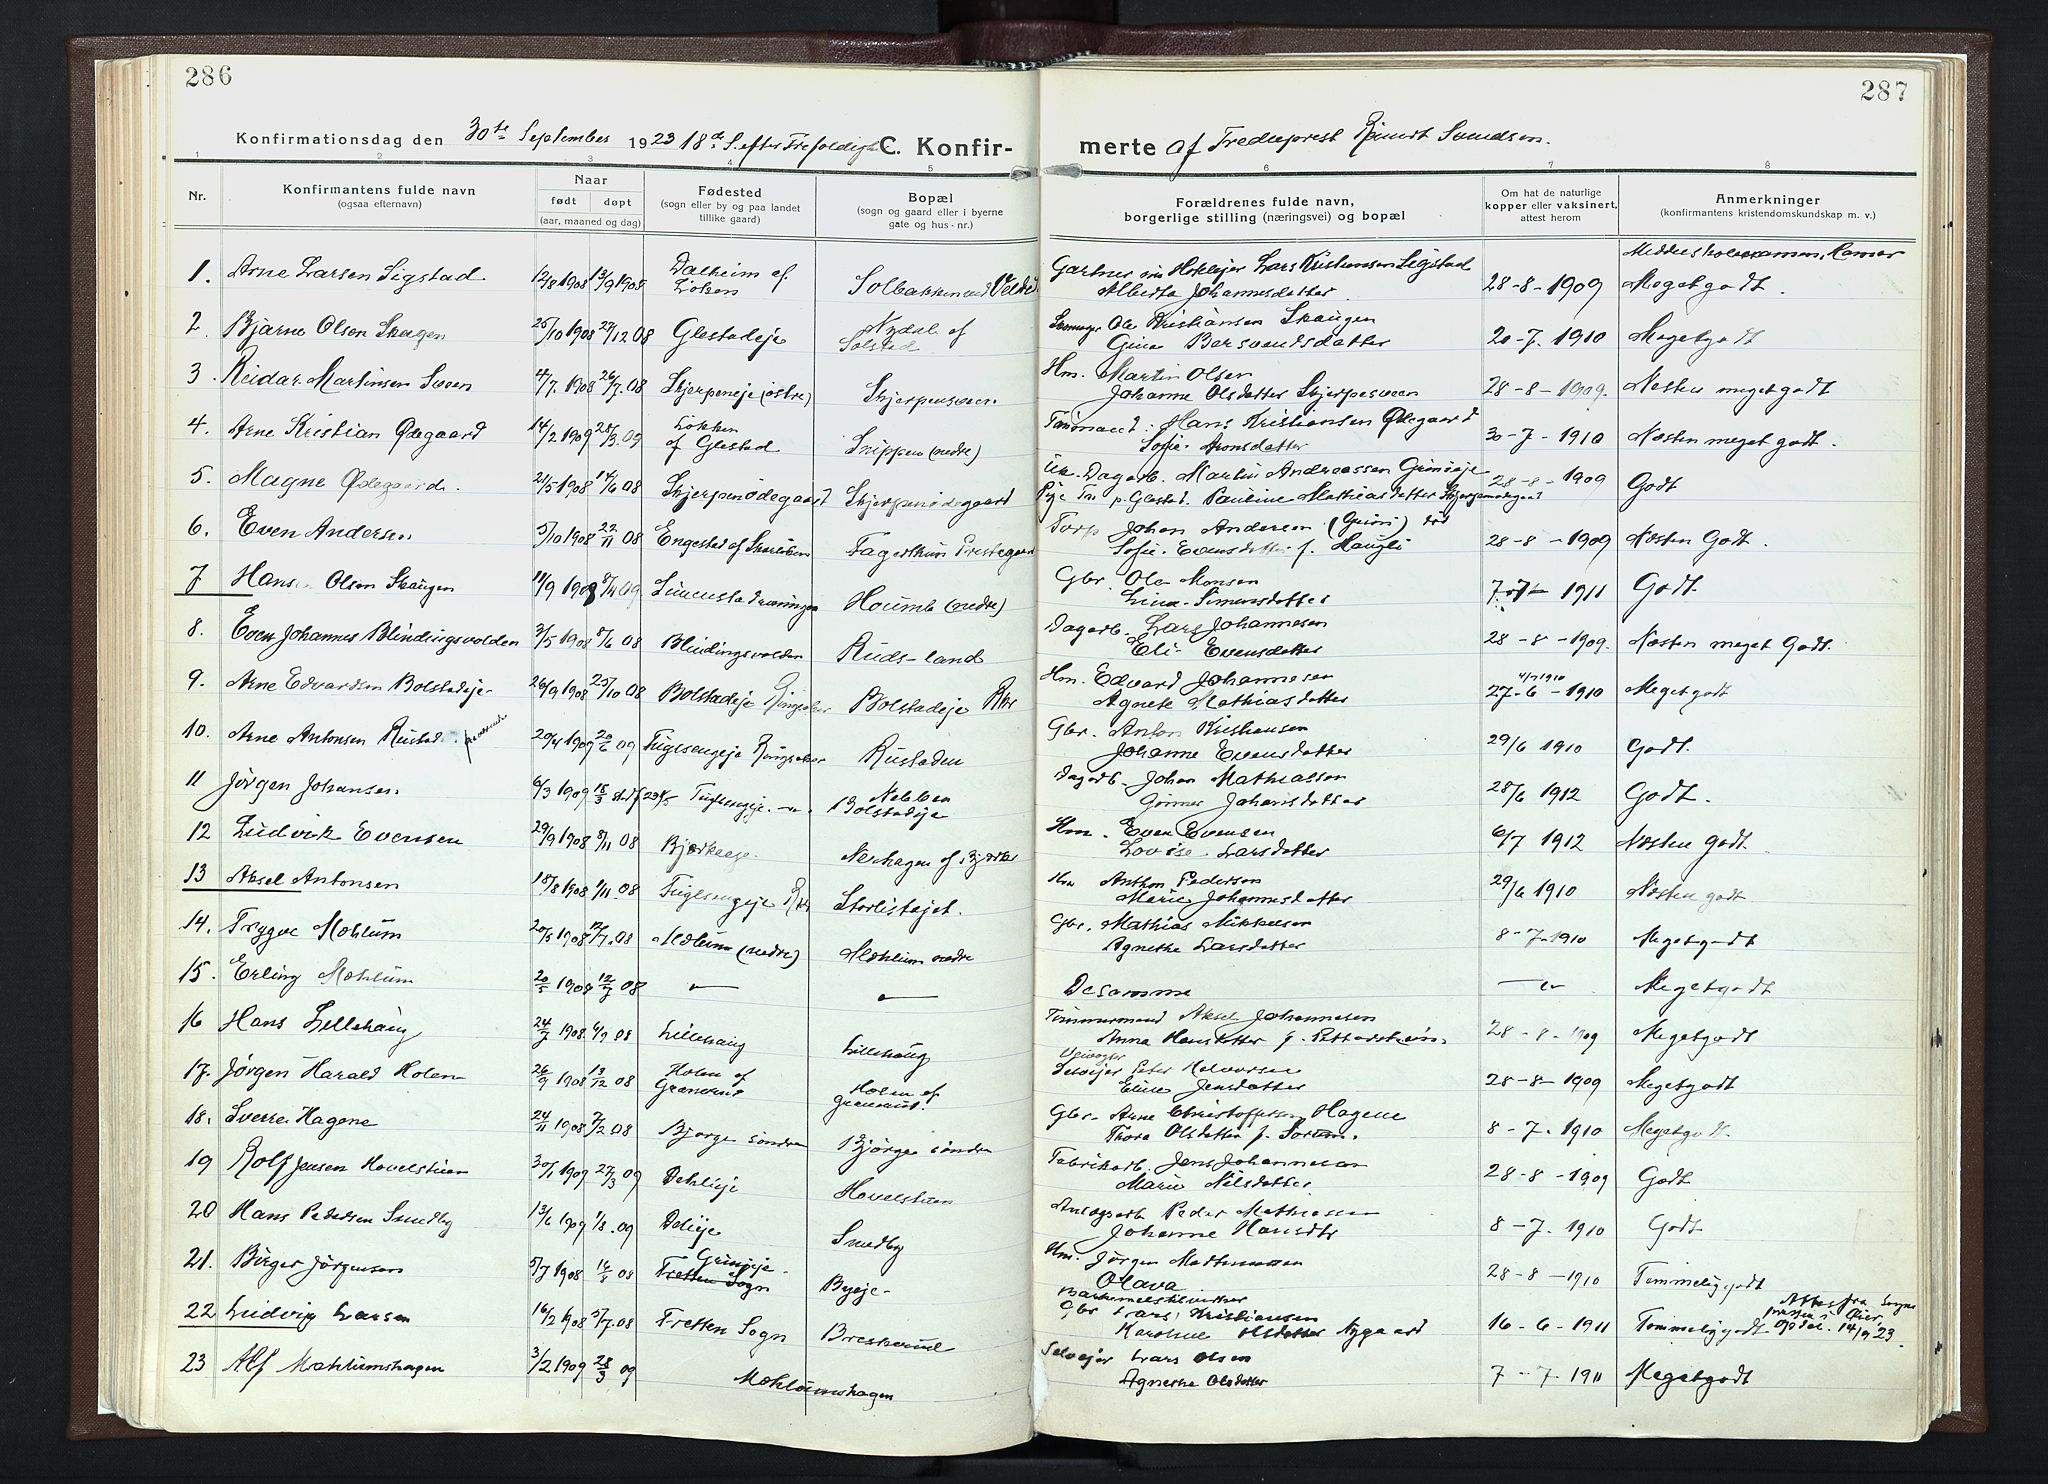 286
287
Konfirmationsdag den 30te September 1923 18de S. efter Trefoldigh C. Konfir-
merte af Tredieprest Svendsen.
1 2 3 4 5
6 7 8
Nr. Konfirmantens fulde navn (ogsaa efternavn) Naar født døpt (aar, maaned og dag) Fødested (sogn eller by og paa landet tillike gaard) Bopæl (sogn og gaard eller i byerne gate og hus-nr.)
Forældrenes fulde navn, borgerlige stilling (næringsvei) og bopæl Om hat de naturlige kopper eller vaksinert, attest herom Anmerkninger (konfirmantens kristendomskundskap m. v.)
1. Arne Larsen Sigstad 12/8 1908 13/9 1908 Dalheim af Solbakken ved
Gartner Lars Kristiansen Sigstad
Alberta Johannesdatter 28-8-1909 Middelskoleeksamen, Hamar Megetgodt.
2 Bjarne Olsen Skaugen 25/10 1908 27/12 08 Glestadeje Nydal af Solstad
Ole Kristiansen Skaugen
Gina Borsvendsdatter 20-7-1910 Megetgodt
3. Reidar Martinsen Sveen 4/7. 1908 26/7. 08 Skjerpeneje (østre) Skjerpensveen
Hm. Martin Olsen
Johanne Olsdatter Skjerpesveen 28-8-1909. Næsten meget godt
4. Arne Kristian Ødegaard 14/2 1909 28/3. 09 Løkken af Glestad Snippen (nedre)
Hans Kristiansen Ødegaard
Sofie Aronsdatter 30-7-1910 Næsten meget godt.
5. Magne Ødegaard. 21/5 1908 14/6 08 Skjerpenødegaard Skjerpenødegaard
Dagarb. Martin Andreassen Grinieje
Pauline Mathiasdatter 28-8-1909 Godt
6. Even Andersen 5/10 1908 22/11 08 Engestad af Fagerthun Prestegaard
Torp Johan Andersen død
Sofie Evensdatter f. Haugli 28-8-1909 Næsten Godt.
7 Hans Olsen Skaugen 11/9 1908 Houmb (nedre)
Gbr. Ole Monsen
Lina Simensdatter 7-7-1911 Godt.
8. Even Johannes Blindingsvolden 3/5 1908 8/6 08 Blindingsvolden Ruds-land
Dagarb. Lars Johannesen
Eli Evensdatter 28-8-1909. Næsten meget Godt.
9. Arne Edvardsen Bolstadeje 26/9 1908 25/10 08 Bolstadeje Ringsaker Bolstadeje Rkr
Hm. Edvard Johannesen
Agnete Mathiasdatter 4/7 1910 27-6-1910 Megetgodt
10. Arne Antonsen Rustad 20/4 1909 20/6 09 Fuglesengeje Ringsaker Rustaden
Gbr. Anton Kristiansen
Johanne Evensdatter 29/6 1910 Godt.
11 Jørgen Johansen 6/3 1909 Fuglsengeje Nabben Bolstadeje
Dagarb. Johan Mathiassen
Johansdatter 28/6 1912 Godt.
12 Ludvik Evensen 29/9 1908 8/11 08 Bjerkeeje Nerhagen af Bjerke
Hm. Even Evensen
Lovise Larsdatter 6/7 1912 Næsten godt.
13 Aksel Antonsen 18/8 1908 1/11. 08 Fuglesengeje Rkr Storlistøjet.
Hm Anthon Pedersen
Marie Johannesdatter 29/6 1910 Næsten godt
14. Trygve Mæhlum 20/5 1908 12/7. 08 Mælum (nedre) Mæhlum nedre
Gbr. Mathias Mikkelsen
Agnethe Larsdatter 8-7-1910 Megetgodt
15. Erling Mæhlum 20/5 1908 12/7 08 — " — — " —
Desamme — " — Megetgodt
16 Hans Lillehaug 24/7 1908 6/9 08 Lillehaug Lillehaug
Tømmermand Aksel Johannesen
Anna Hansdatter 28-8-1909 Megetgodt
17. Jørgen Harald Holen 26/9 1908 13/12 08 Holen af Holen af
Selvejer Peter Halvorsen
Eline Jensdatter 28-8-1909 Megetgodt
18. Sverre Hagene 24/11 1908 7/2.08 Bjørge søndre Bjørge søndre
Gbr. Arne Christoffersen Hagene
Thora Olsdatter f. Sorum. 8-7-1910 Megetgodt.
19 Rolf Jensen Hovelstuen 30/1 1909 27/3 09 Dehlieje Hovelstuen
Fabrikarb. Jens Johannesen
Marie Nilsdatter 28-8-1909 Godt
20 Hans Pedersen Smedby 13/6 1909 1/8. 09 Delieje Smedby
Peder Mathiassen
Johanne Hansdtr 8-7. 1910 Godt
21. Birger Jørgensen 5/7 1908 16/8 08 Grinieje Fretten Sogn Byeje
Hm. Jørgen
Olava 28-8-1910 Temmelig godt
22 Ludvig Larsen 16/2 1908 5/7.08 Fretten Sogn
Gbr Lars Kristiansen
Karoline Olsdatter Nygaard 16-6-1911 Temmeliggodt Attest fra Sogne 14/9 23.
23 Alf Mæhlumshagen 3/2 1909 28/3 09 Mæhlumshagen
Selvejer Lars Olsen
Agnethe Olsdatter 7-7 1911 Megetgodt